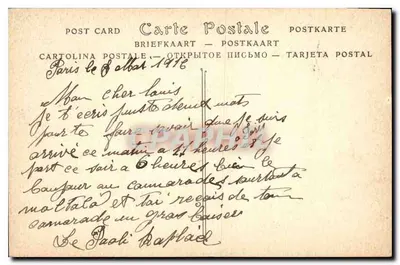 POST CARD Carte Postale POSTKARTE
BRIEFKAART - POSTKAART
CARTOLINA POSTALE - ОТКРЫТОЕ ПИСЬМО - TARJETA POSTAL
Paris le 8 Mai 1916
Mon cher louis
je t'ecris juste deux mots
pour te faire savoir que je suis
arrivé ce matin a 4 heures je
part ce soir a 6 heures bien le
Bonjour au camarades surtout a
et toi reçois de ton
camarade un gros Baiser
Le Paoli Raphael